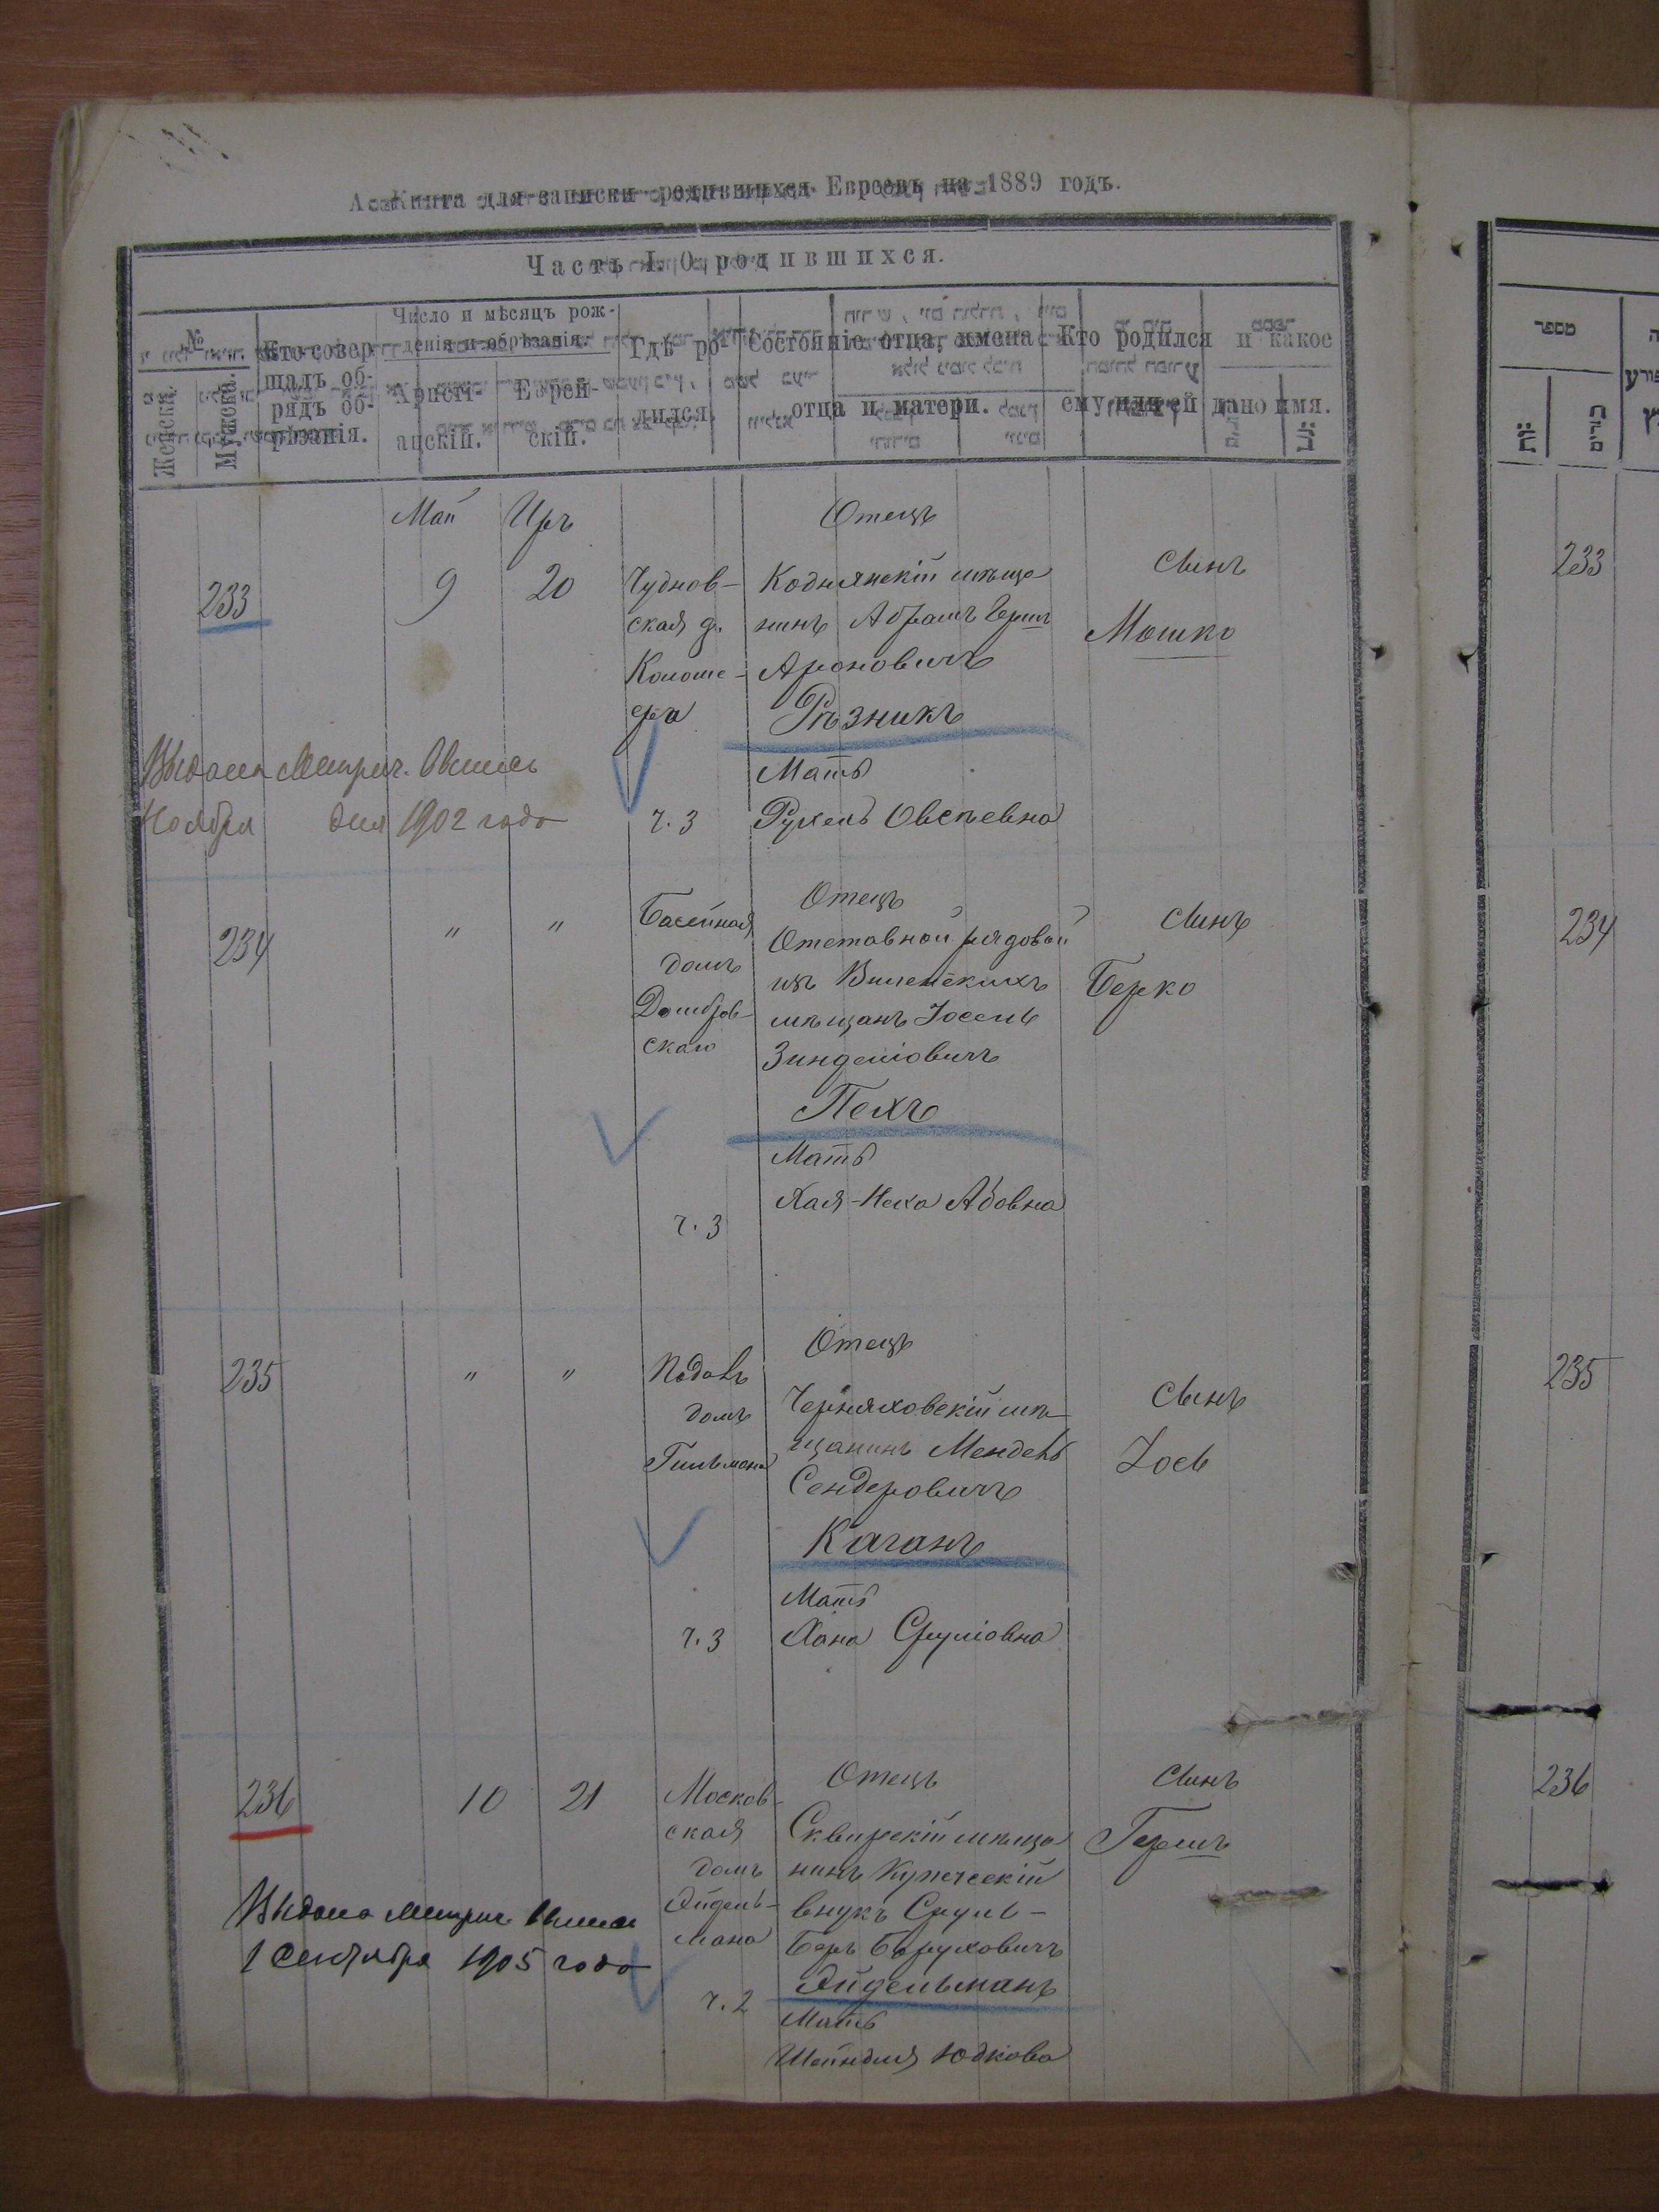 Книга для записки родившихся Евреевъ на 1889 годъ.
Часть I. О родившихся.
№
Женска.
Мужска.
Кто совер
шалъ об-
рядъ об-
рѣзанія.
Число и мѣсяцъ рож-
денія и обрѣзанія.
Христі-
анскій.
Еврей-
скій.
Гдѣ ро
дился.
Состояніе отца, имена
отца и матери.
Кто родился и какое
ему или ей дано имя.
Май Иръ
233
9
20
Чуднов-
ская д.
ч. 3
Отецъ
Коднянскій мѣща
нинъ Абрамъ Герш
Ароновичъ
Рѣзникъ
Мать
Рухель Овсѣевна
Сынъ
Мошко
Выдана Метрич. Выпись
Ноября дня 1902 года
234
"
"
Басейная
домъ
Домбров-
скаго
ч. 3
Отецъ
Отставной рядовой
изъ Виленскихъ
мѣщанъ Іосель
Зинделіовичъ
Пехъ
Мать
Хая-Неха Абовна
Сынъ
Берко
235
"
"
домъ
Гильмана
ч. 3
Отецъ
Черняховскій мѣ-
щанинъ Мендель
Сендеровичъ
Каганъ
Мать
Хана Сруліовна
Сынъ
236
10
21
Москов-
ская
домъ
Эйдель-
мана
ч. 2
Отецъ
Сквирскій мѣща
нинъ Купеческій
внукъ Сруль-
Беръ Боруховичъ
Эйдельманъ
Мать
Шейндля Юдкова
Сынъ
Гершъ
Выдана Метрич. Выпись
1 Сентября 1905 года
מספר
233
234
235
236